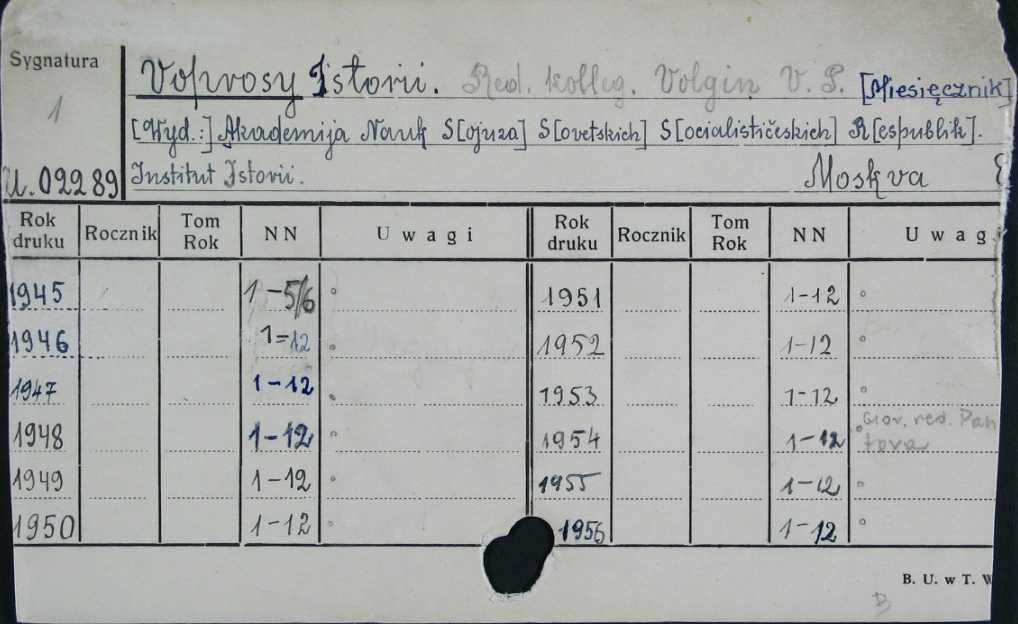 Sygnatura
1
U. 02289
Voprosy Istorii. Red. kolleg. Volgin V. P. [Miesięcznik]
[Wyd.:] Akademija Nauk S[ojuza] S[ovetskich] S[ocialističeskich] R[espublik].
Institut Istorii. Moskva
Rok druku Rocznik Tom Rok NN Uwagi Rok druku Rocznik Tom Rok NN Uwagi
1945 1-5/6 ° 1951 1-12 °
1946 1=12 ° 1952 1-12 °
1947 1-12 ° 1953 1-12 °
1948 1-12 ° 1954 1-12 ° red.
1949 1-12 ° 1955 1-12 °
1950 1-12 ° 1956 1-12 °
B. U. w T. W
B